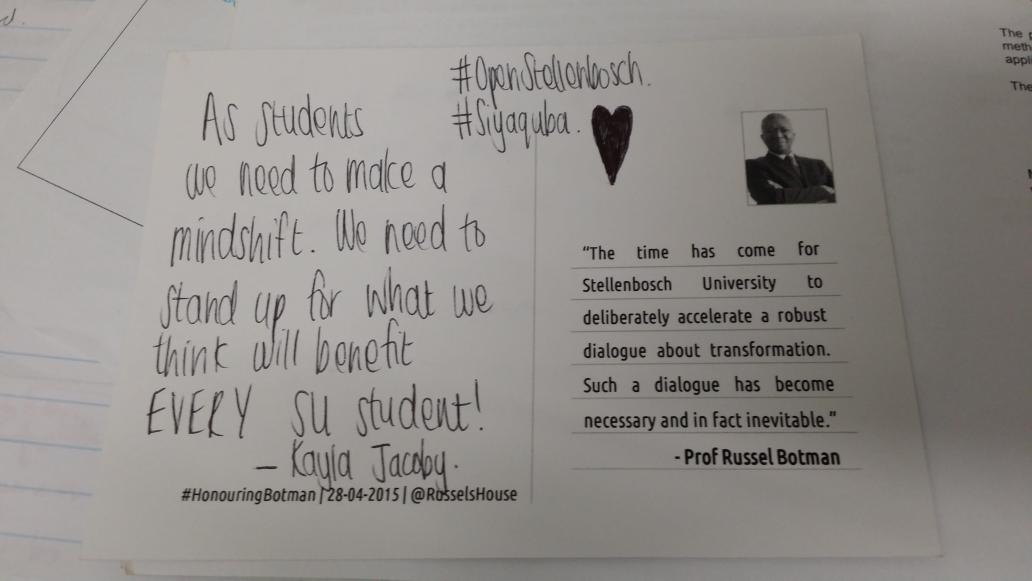 #OpenStellenbosch.
#Siyaquba.
As students
we need to make a
mindshift. We need to
stand up for what we
think will benefit
EVERY SU student!
– Kayla Jacoby.
#HonouringBotman | 28-04-2015 | @RusselsHouse
"The time has come for
Stellenbosch University to
deliberately accelerate a robust
dialogue about transformation.
Such a dialogue has become
necessary and in fact inevitable."
- Prof Russel Botman
The